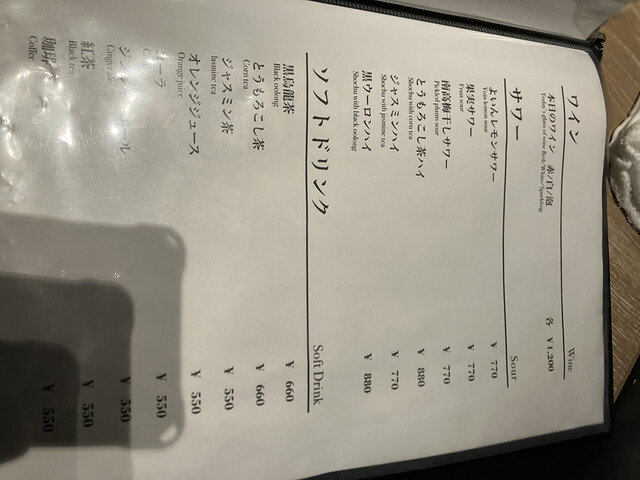 ワイン Wine
本日のワイン 赤/白/泡 各 ¥1,200
Today's glass of wine Red/White/Sparkling
サワー Sour
よいんレモンサワー ¥770
Yoin lemon sour
果実サワー ¥770
Fruit sour
南高梅干しサワー ¥770
Pickled plums sour
とうもろこし茶ハイ ¥880
Shochu with corn tea
ジャスミンハイ ¥770
Shochu with jasmine tea
黒ウーロンハイ ¥880
Shochu with black oolong
ソフトドリンク Soft Drink
黒烏龍茶 ¥660
Black oolong
とうもろこし茶 ¥660
Corn tea
ジャスミン茶 ¥550
Jasmine tea
オレンジジュース ¥550
Orange juice
ーラ ¥550
ジン ール ¥550
Ginger ale
紅茶 ¥550
Black tea
珈琲 ¥550
Coffee